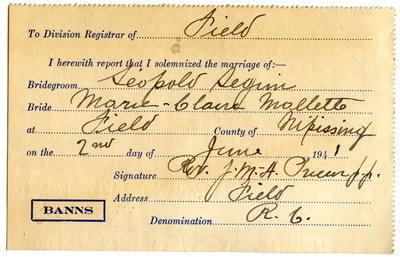 To Division Registrar of Field
I herewith report that I solemnized the marriage of:—
Bridegroom Leopold Seguin
Bride Marie-Claire Mallette
at Field County of Nipissing
on the 2nd day of June 1941
Signature Rev. J.M.A. p.p.
Address Field
BANNS
Denomination R. C.